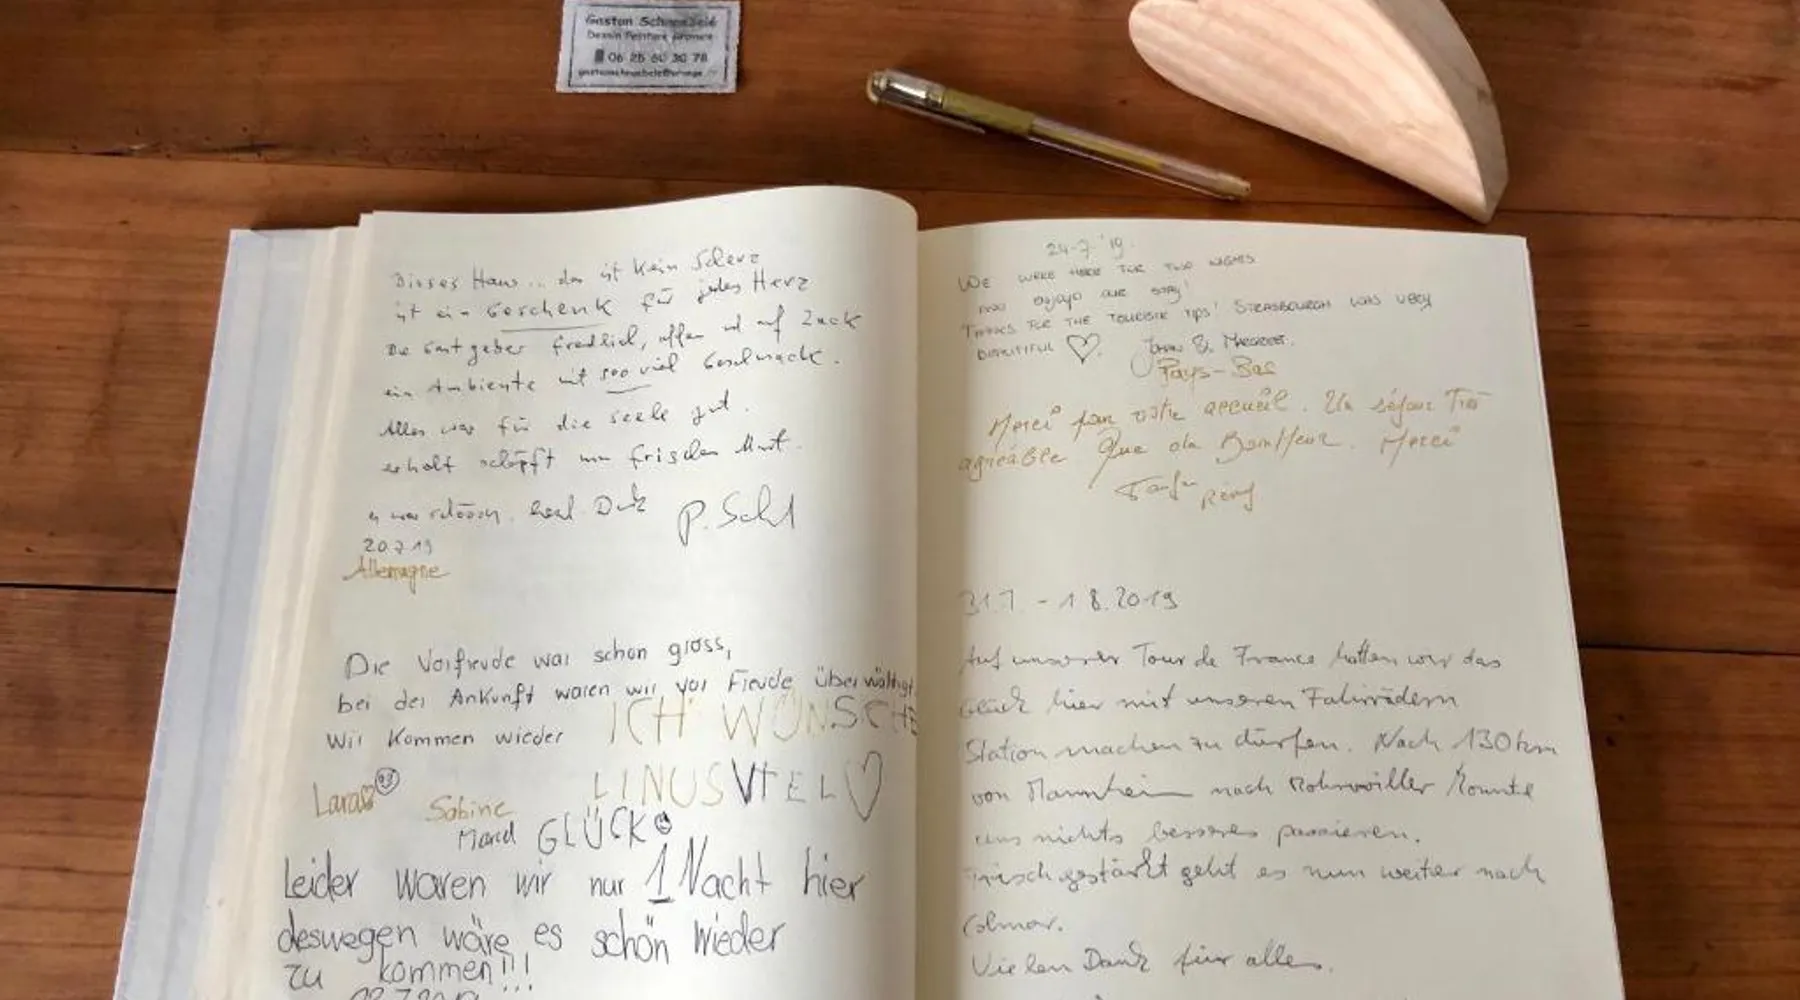 Gaston Schnoebelé
Dessin Peinture Gravure
06 25 60 30 78
Dieses Haus... das ist kein Scherz
ist ein Geschenk für jedes Herz
Die Gastgeber friedlich, offen und auf Zack
ein Ambiente mit soo viel Geschmack.
Alles war für die Seele gut.
erholt schöpft man frischen Mut.
es war schööön. Dank P. Sahl
20.7.19
Allemagne
Die Vorfreude war schon gross,
bei der Ankunft waren wir vor Freude überwältigt
Wir kommen wieder
ICH WÜNSCHE
LINUS VIEL ♡
Lara
Sabine
Marcel
GLÜCK
Leider waren wir nur 1 Nacht hier
deswegen wäre es schön wieder
zu kommen!!!
24-7-'19.
WE WERE HERE FOR TWO NIGHTS
AND ENJOYD OUR STAY!
THANKS FOR THE TOURISTIC TIPS! STRASBOURGH WAS VERY
BEAUTIFUL ♡. JOHAN & MARGREET.
Pays-Bas
Merci pour votre accueil. Un séjour Très
agréable. Que du Bonheur. Merci
31.7. - 1.8.2019
Auf unserer Tour de France hatten wir das
Glück hier mit unseren Fahrrädern
Station machen zu dürfen. Nach 130 km
von Mannheim nach Rohrwiller konnte
uns nichts besseres passieren.
Frisch gestärkt geht es nun weiter nach
Colmar.
Vielen Dank für alles.